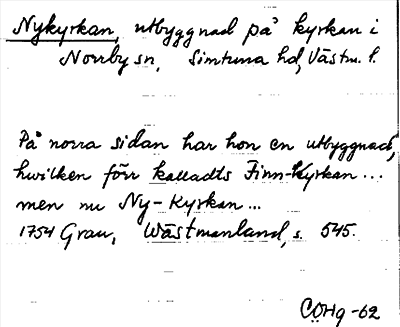 Nykyrkan, utbyggnad på kyrkan i
Norrby sn, Simtuna hd, Västm. l.
På norra sidan har hon en utbyggnad,
hwilken förr kalladts Finn-Kyrkan...
men nu Ny-Kyrkan...
1754 Grau, Wästmanland, s. 545.
COHg -62